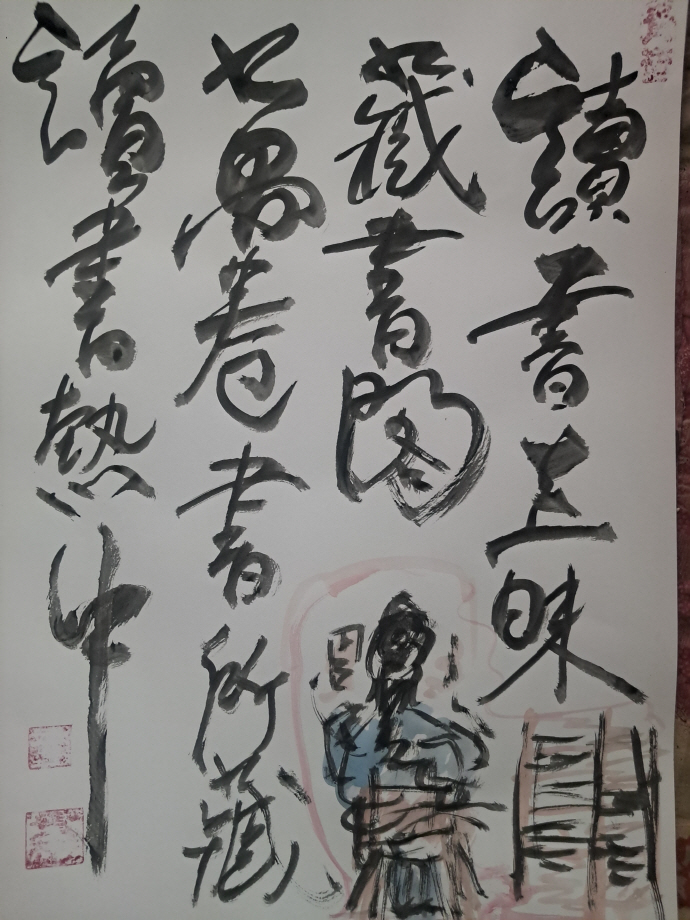 讀書三昧
藏書图
七萬卷書所藏
讀書熱中